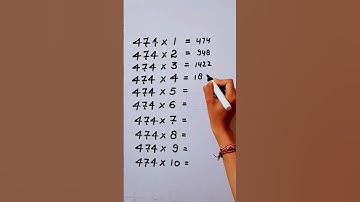 474 x 1 = 474
474 x 2 = 948
474 x 3 = 1422
474 x 4 = 18
474 x 5 =
474 x 6 =
474 x 7 =
474 x 8 =
474 x 9 =
474 x 10 =